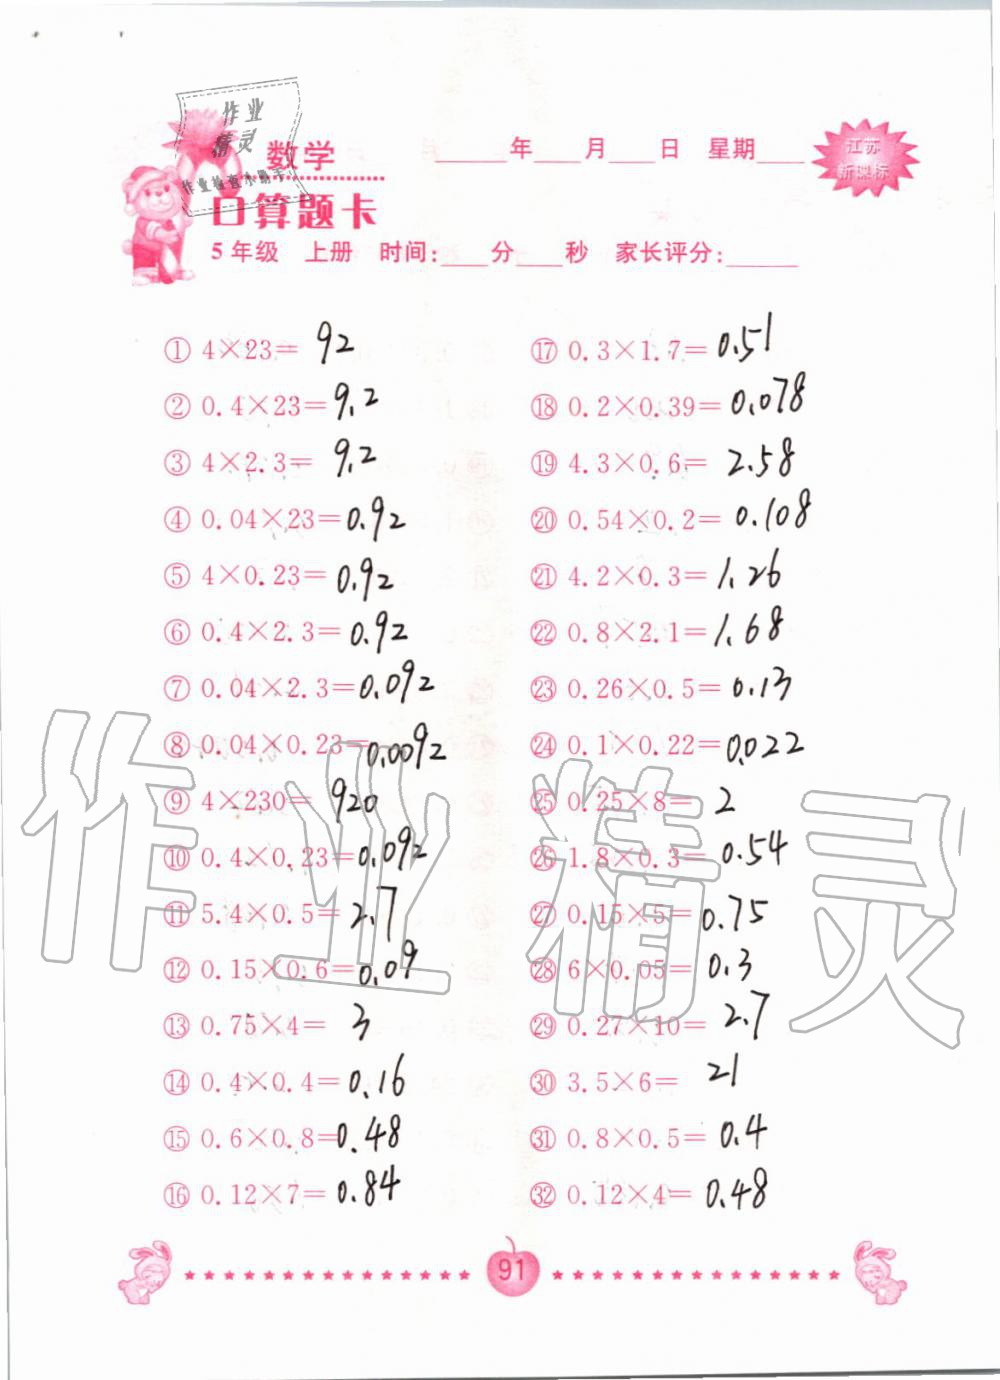 作业
精灵
作业检查小助手
数学
____年____月____日 星期____
江苏
新课标
口算题卡
5年级 上册 时间:____分____秒 家长评分:____
① 4×23= 92
② 0.4×23= 9.2
③ 4×2.3= 9.2
④ 0.04×23= 0.92
⑤ 4×0.23= 0.92
⑥ 0.4×2.3= 0.92
⑦ 0.04×2.3= 0.092
⑧ 0.04×0.23= 0.0092
⑨ 4×230= 920
⑩ 0.4×0.23= 0.092
⑪ 5.4×0.5= 2.7
⑫ 0.15×0.6= 0.09
⑬ 0.75×4= 3
⑭ 0.4×0.4= 0.16
⑮ 0.6×0.8= 0.48
⑯ 0.12×7= 0.84
⑰ 0.3×1.7= 0.51
⑱ 0.2×0.39= 0.078
⑲ 4.3×0.6= 2.58
⑳ 0.54×0.2= 0.108
㉑ 4.2×0.3= 1.26
㉒ 0.8×2.1= 1.68
㉓ 0.26×0.5= 0.13
㉔ 0.1×0.22= 0.022
㉕ 0.25×8= 2
㉖ 1.8×0.3= 0.54
㉗ 0.15×5= 0.75
㉘ 6×0.05= 0.3
㉙ 0.27×10= 2.7
㉚ 3.5×6= 21
㉛ 0.8×0.5= 0.4
㉜ 0.12×4= 0.48
作业精灵
91